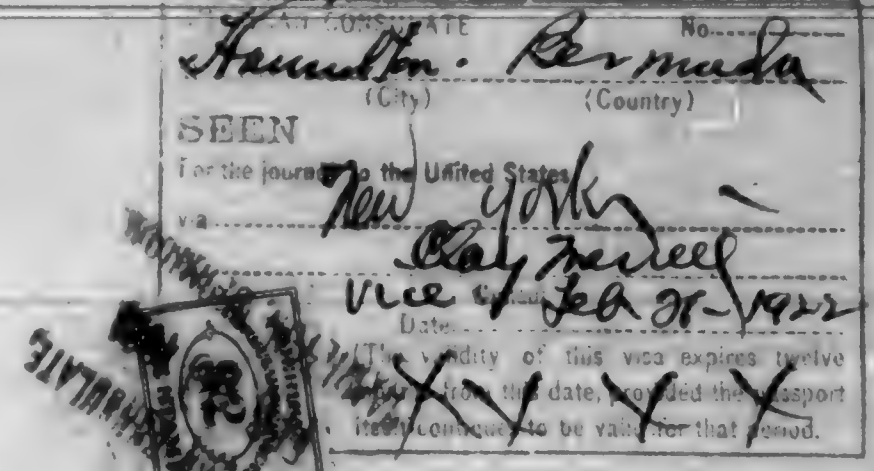 CONSULATE No.
Hamilton. Bermuda
(City) (Country)
SEEN
For the journey to the United States
via New York
Clay Merrell
Vice Consul
Date Feb 28-1922
(The validity of this visa expires twelve
from this date, provided the passport
itself continues to be valid for that period.
X X X X